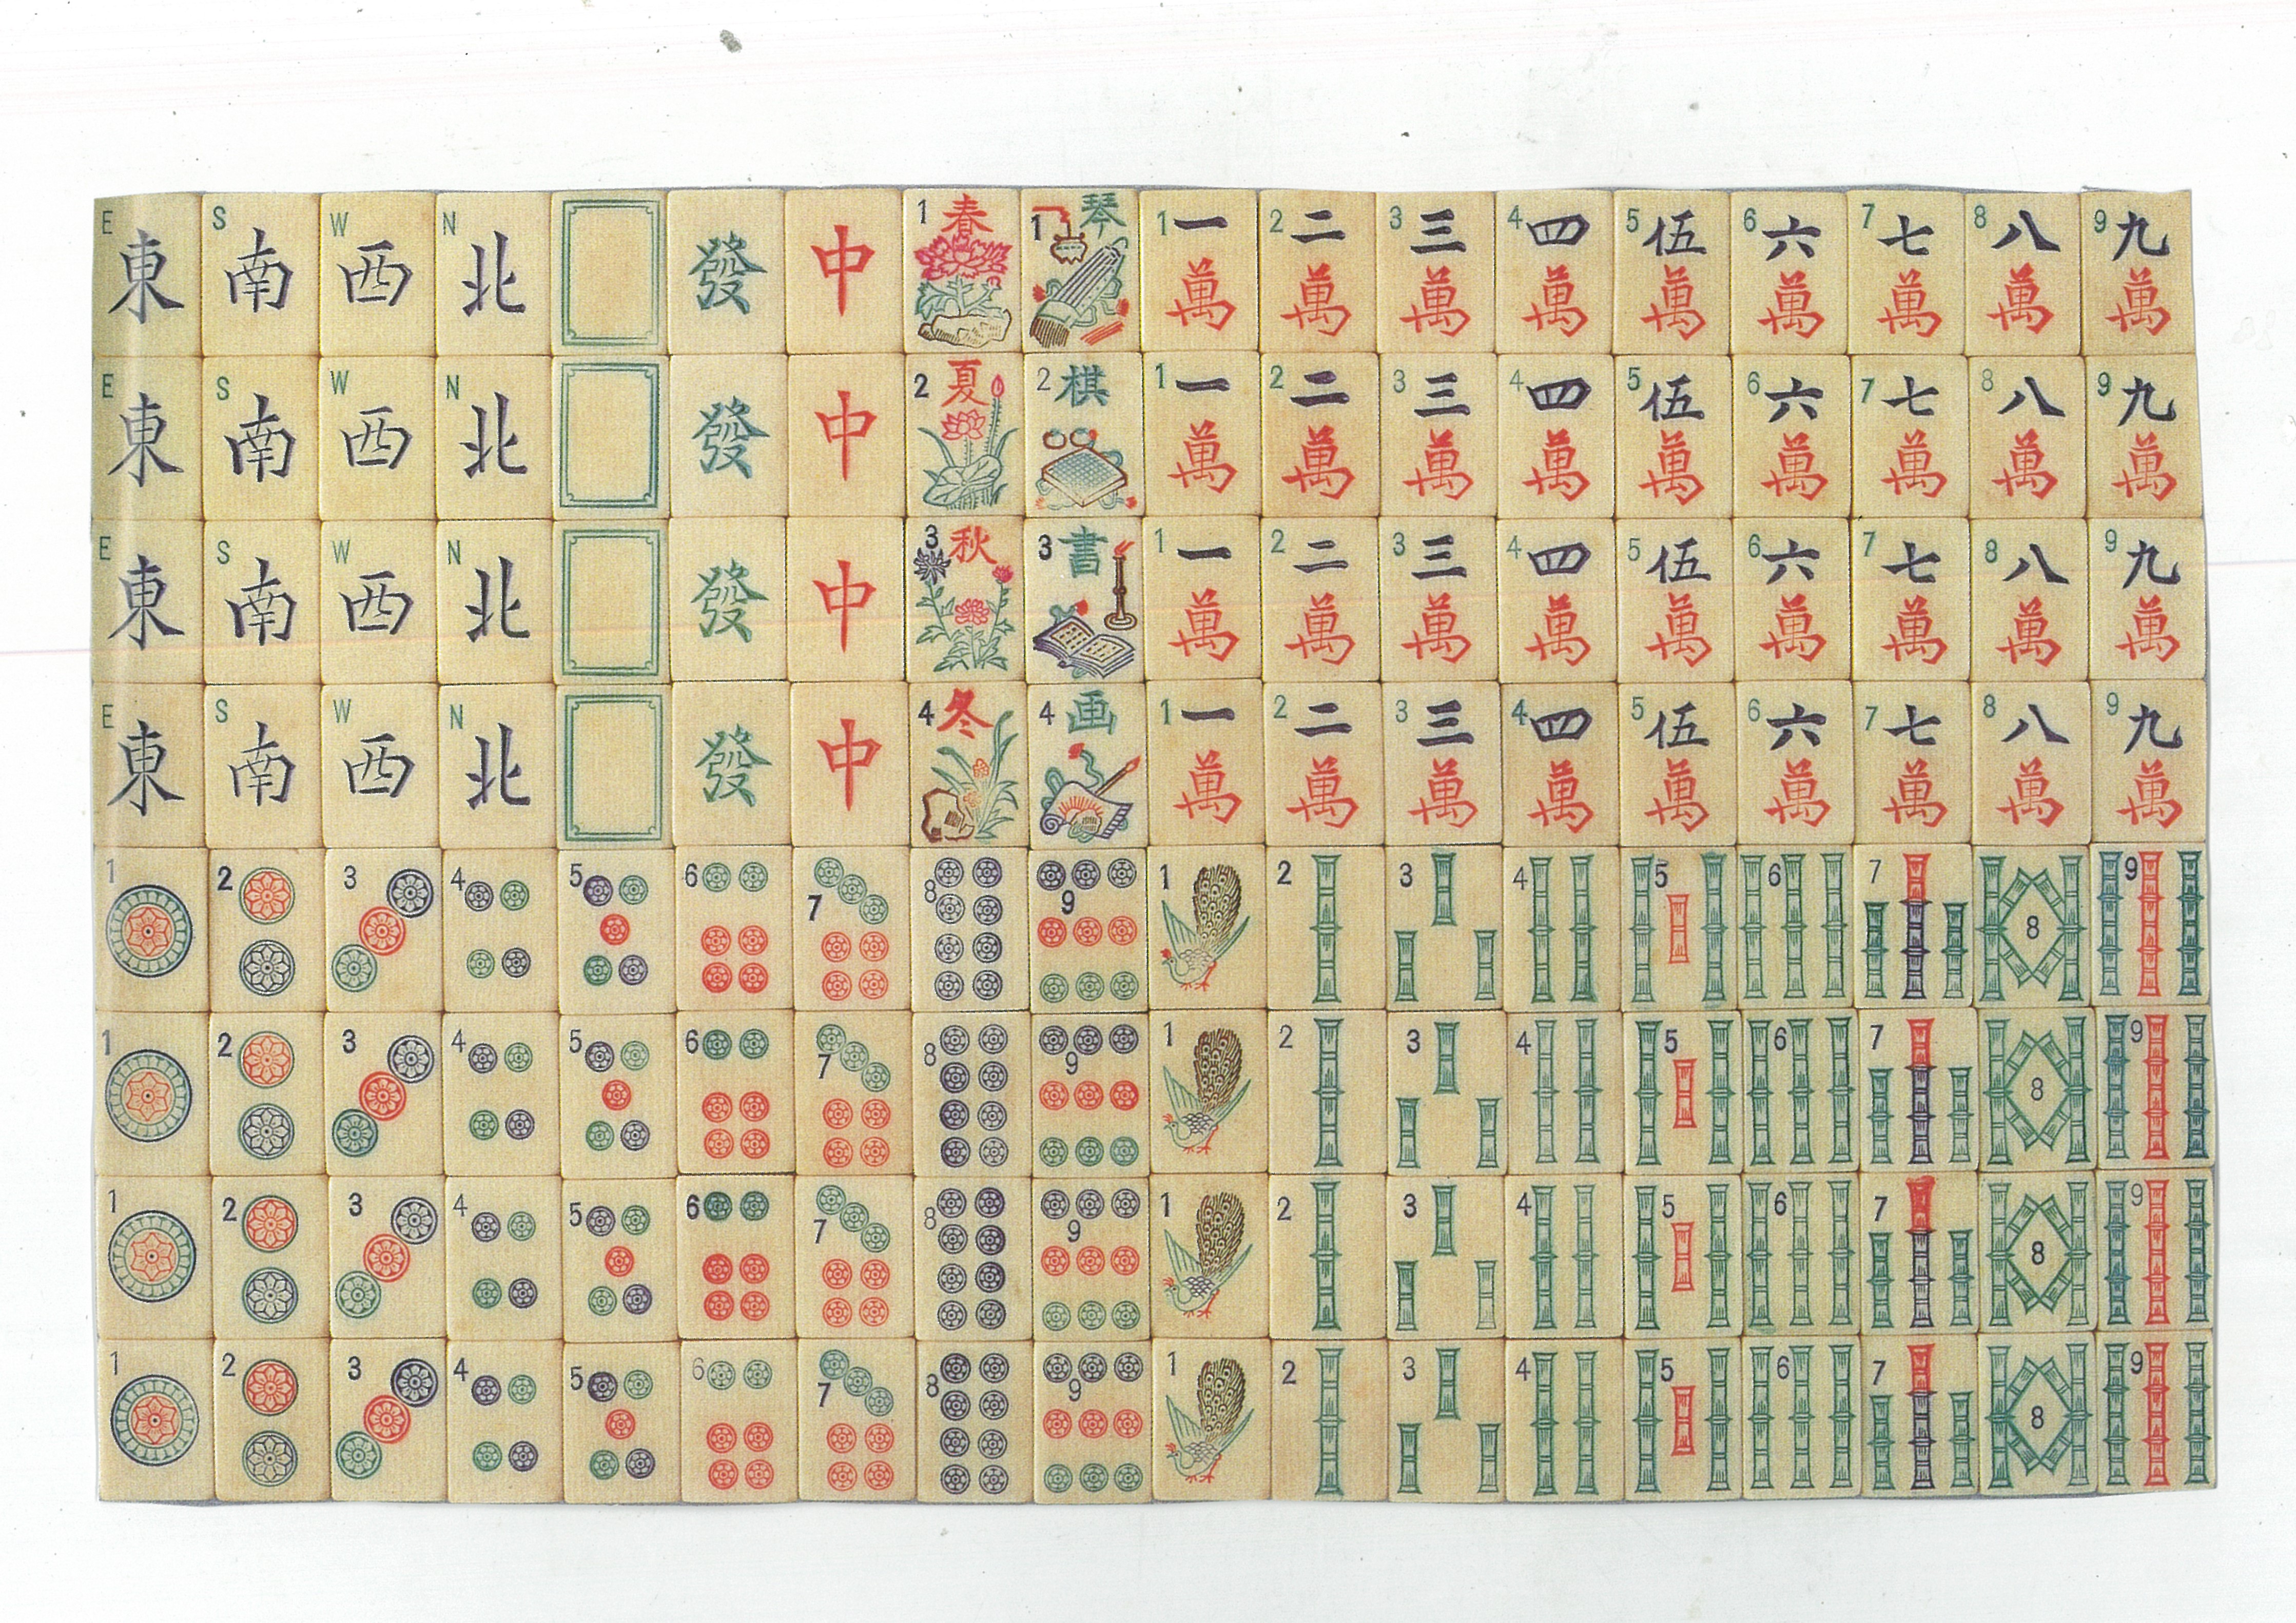 E 東 S 南 W 西 N 北 發 中 1 春 1 琴 1 一 萬 2 二 萬 3 三 萬 4 四 萬 5 伍 萬 6 六 萬 7 七 萬 8 八 萬 9 九 萬
E 東 S 南 W 西 N 北 發 中 2 夏 2 棋 1 一 萬 2 二 萬 3 三 萬 4 四 萬 5 伍 萬 6 六 萬 7 七 萬 8 八 萬 9 九 萬
E 東 S 南 W 西 N 北 發 中 3 秋 3 書 1 一 萬 2 二 萬 3 三 萬 4 四 萬 5 伍 萬 6 六 萬 7 七 萬 8 八 萬 9 九 萬
E 東 S 南 W 西 N 北 發 中 4 冬 4 画 1 一 萬 2 二 萬 3 三 萬 4 四 萬 5 伍 萬 6 六 萬 7 七 萬 8 八 萬 9 九 萬
1 2 3 4 5 6 7 8 9 1 2 3 4 5 6 7 8 9
1 2 3 4 5 6 7 8 9 1 2 3 4 5 6 7 8 9
1 2 3 4 5 6 7 8 9 1 2 3 4 5 6 7 8 9
1 2 3 4 5 6 7 8 9 1 2 3 4 5 6 7 8 9